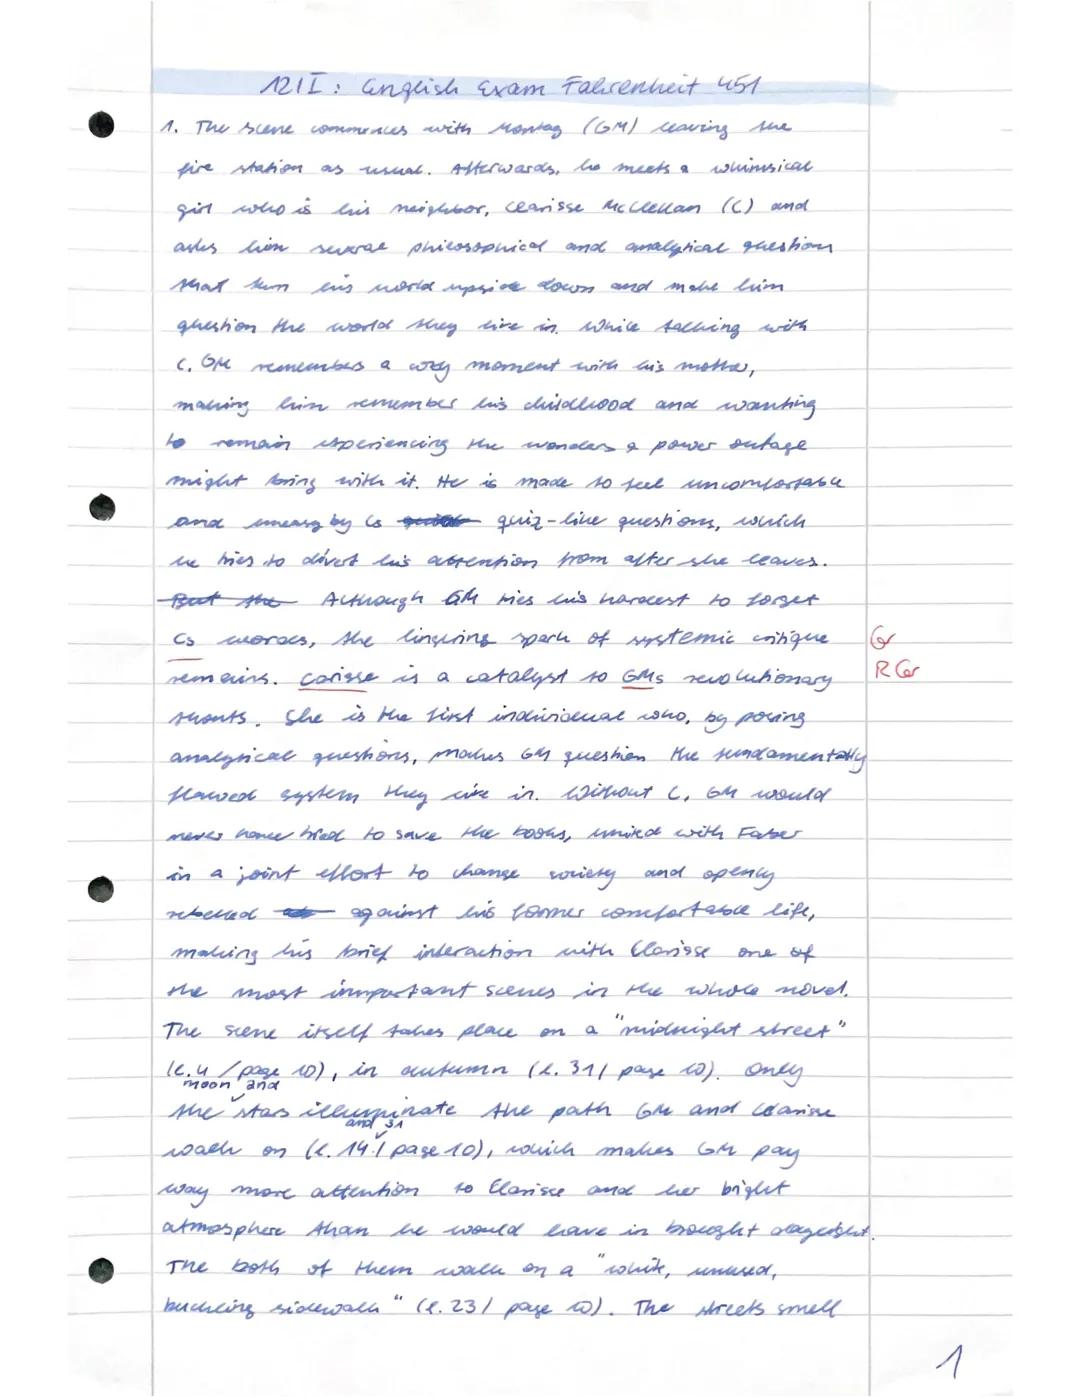 12II: English Exam Fahrenheit 451
1. The scene commences with Montag (GM) leaving the
fire station as usual. Afterwards, he meets a whimsical
girl who is his neighbor, Clarisse McClellan (C) and
asks him several philosophical and analytical question
that turn his world upside down and make him
question the world they live in. While talking with
C, GM remembers a cozy moment with his mother,
making him remember his childhood and wanting
to remain experiencing the wonders a power outage
might bring with it. He is made to feel uncomfortable
and uneasy by Cs quiz-like questions, which
he tries to divert his attention from after she leaves.
But the Although GM tries his hardest to forget
Cs words, the lingering spark of systemic critique
Gr
remains. Carisse is a catalyst to GMs revolutionary
R Gr
. She is the first individual who, by posing
analytical questions, makes GM question the fundamentally
flawed system they live in. Without C, GM would
never have tried to save the books, united with Faber
in a joint effort to change society and openly
rebelled against his former comfortable life,
making his brief interaction with Clarisse one of
the most important scenes in the whole novel.
The scene itself takes place on a "midnight street"
(l.4 / page 10), in autumn (l.31/ page 10). Only
the moon and stars illuminate the path GM and Clarisse
walk on (l.14 and 31 / page 10), which makes GM pay
way more attention to Clarisse and her bright
atmosphere than he would have in brought daylight.
The both of them walk on a "white, unused,
buckling sidewalk" (l.23/ page 10). The streets smell
1